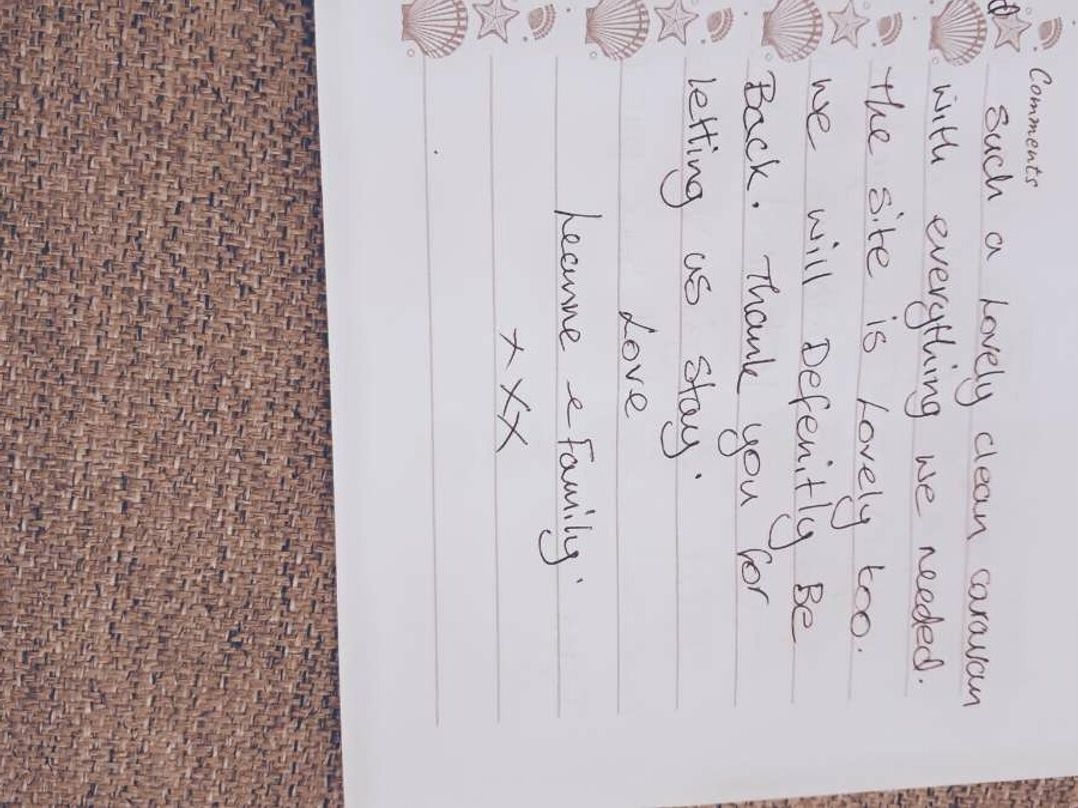 Comments
Such a Lovely clean caravan
with everything we needed.
The site is Lovely too.
we will Defenitly Be
Back. Thank you for
letting us stay.
Love
Leanne & Family
x xx